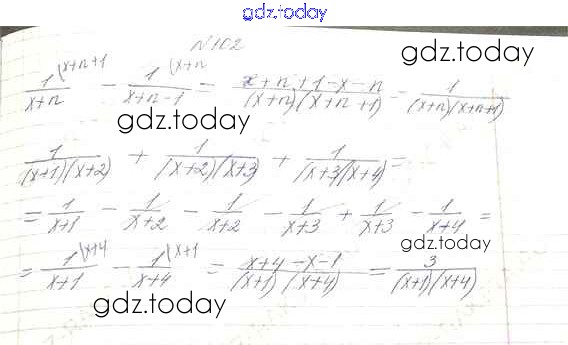 gdz.today
N 102
gdz.today
1/(x+n) (x+n+1 - 1/(x+n-1) (x+n = (x+n+1-x-n)/((x+n)(x+n+1)) - 1/((x+n)(x+n+1))
gdz.today
1/((x+1)(x+2)) + 1/((x+2)(x+3)) + 1/((x+3)(x+4)) =
= 1/(x+1) - 1/(x+2) - 1/(x+2) - 1/(x+3) + 1/(x+3) - 1/(x+4) =
gdz.today
= 1/(x+1) (x+4 - 1/(x+4) (x+1 = (x+4-x-1)/((x+1)(x+4)) = 3/((x+1)(x+4))
gdz.today